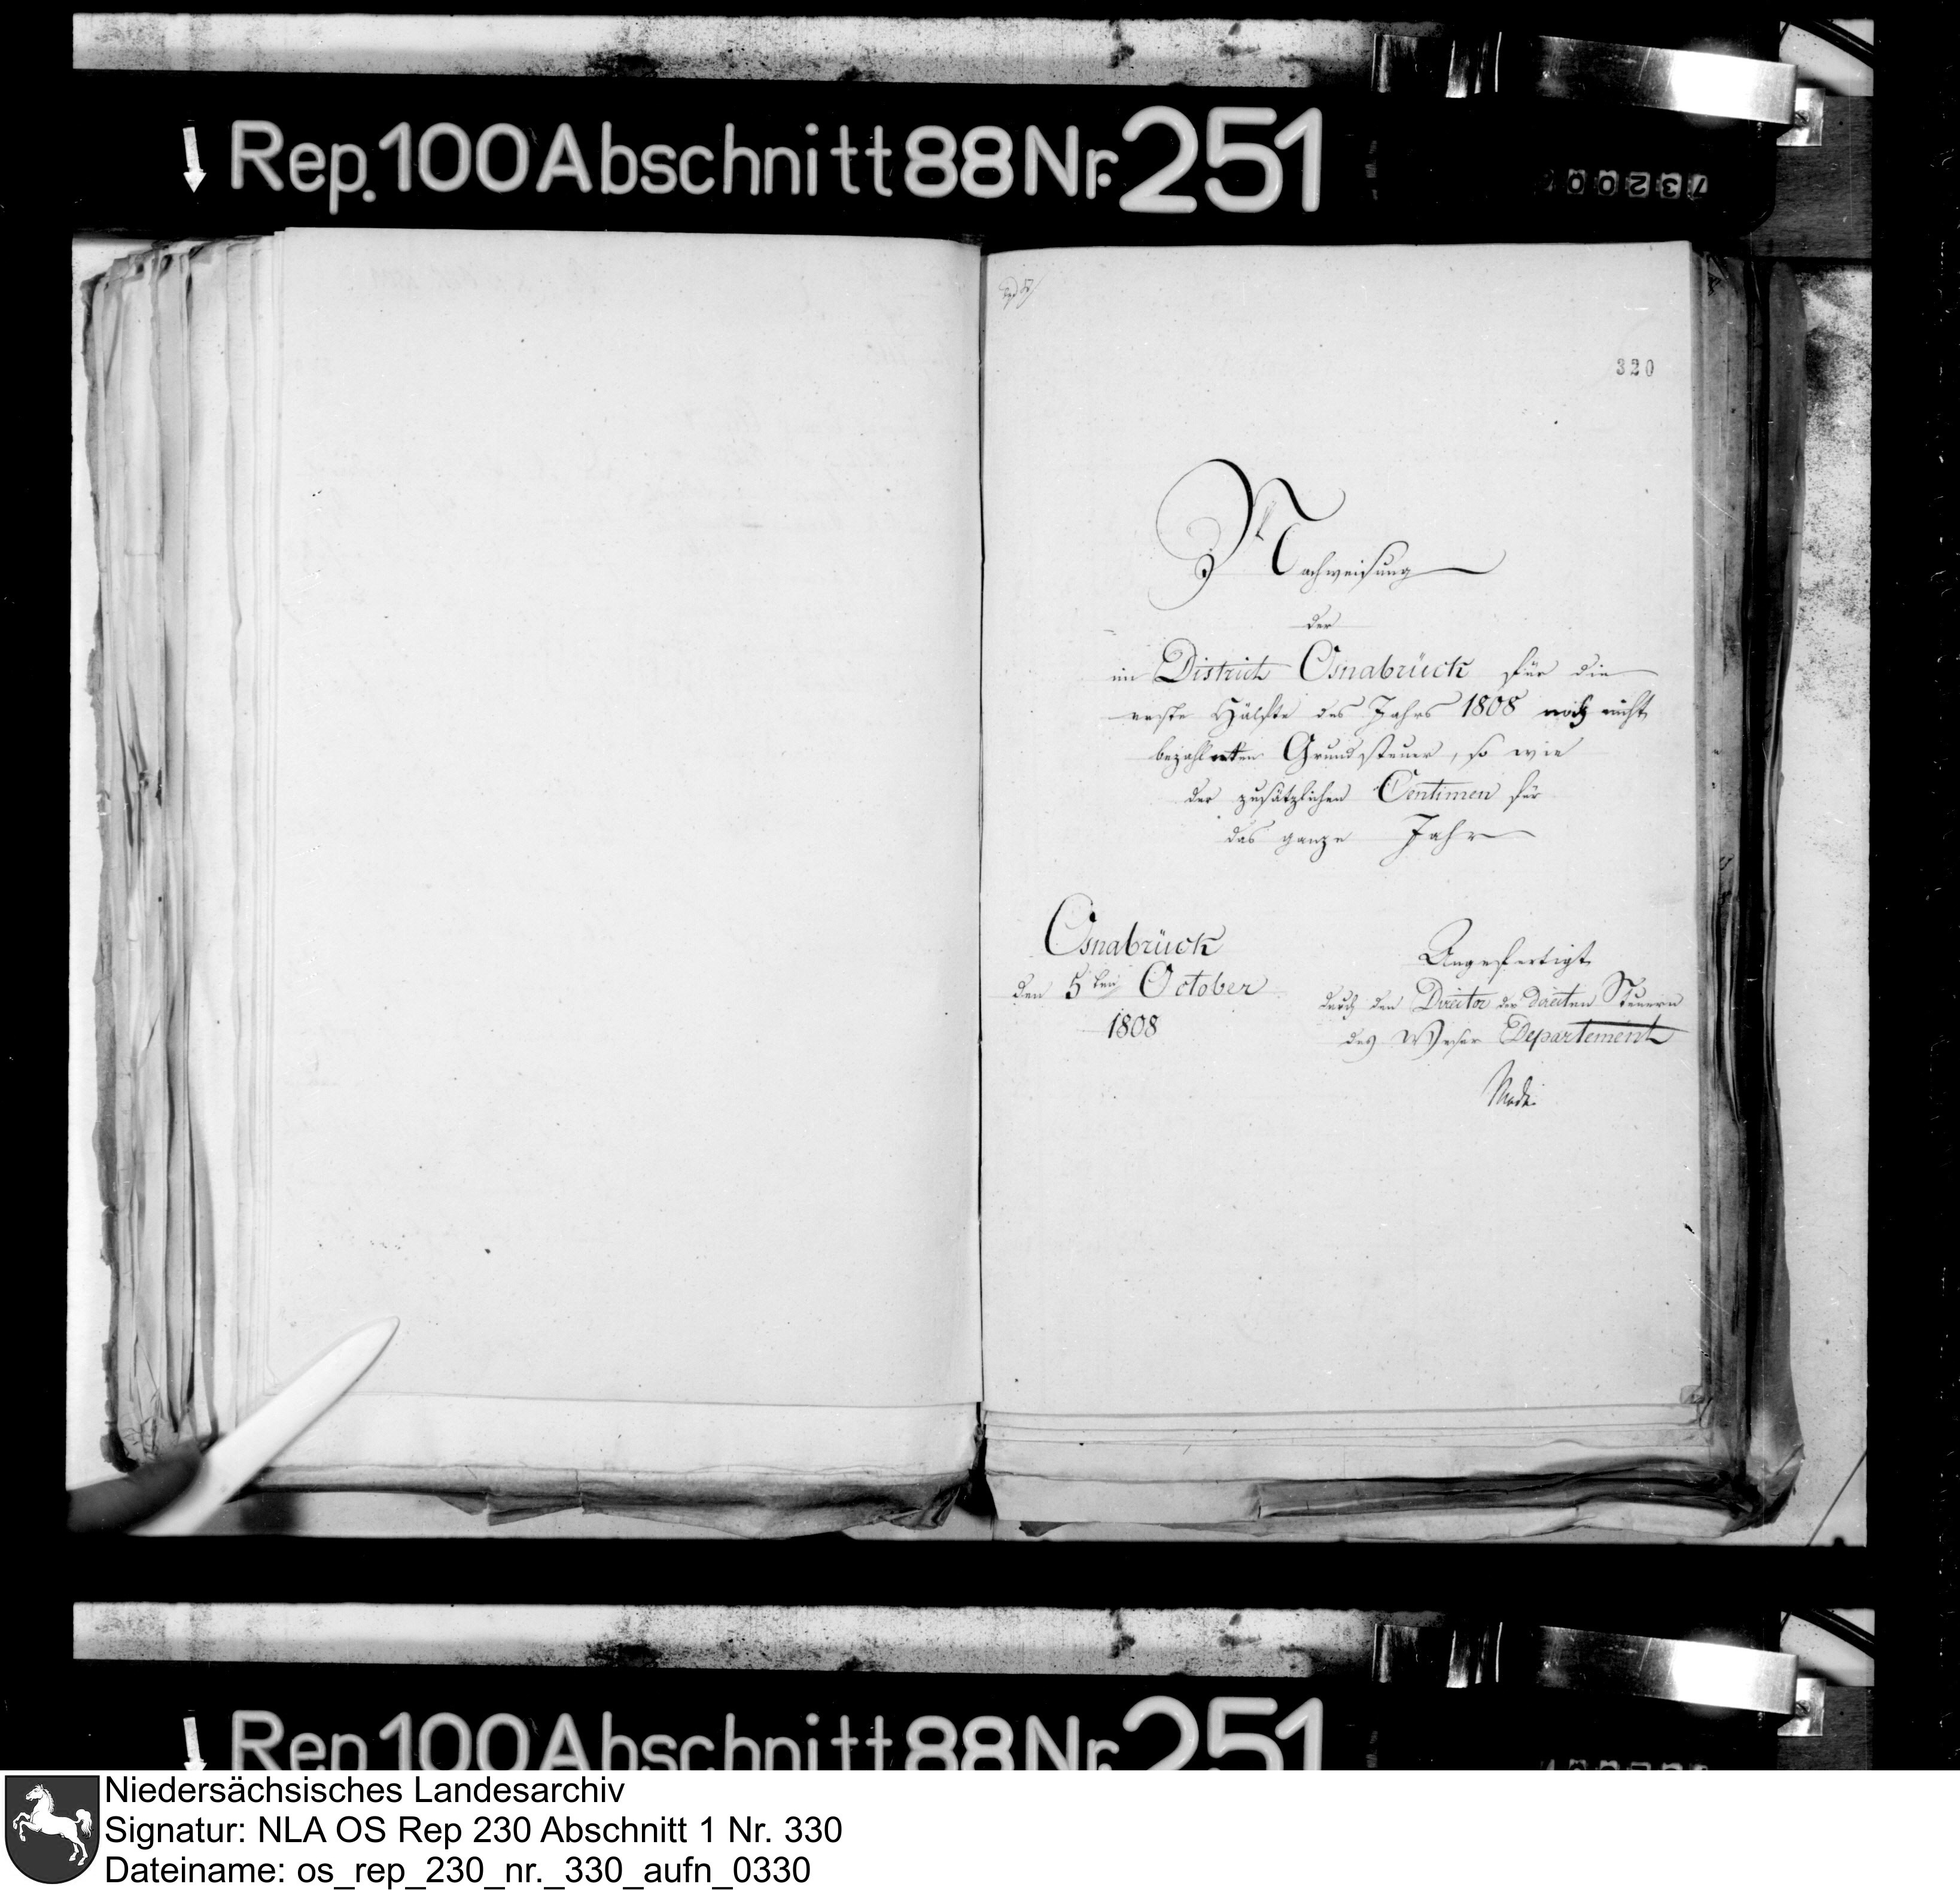 Rep. 100 Abschnitt 88 Nr. 251
320
Nachweisung
der
im District Osnabrück für die
erste Hälfte des Jahrs 1808 noch nicht
bezahlten Grundsteuer, so wie
der zusätzlichen Centimen für
das ganze Jahr
Osnabrück
den 5ten October
1808
Angefertigt
durch den Director der directen Steuern
des Weser Departement
Rep. 100 Abschnitt 88 Nr. 251
Niedersächsisches Landesarchiv
Signatur: NLA OS Rep 230 Abschnitt 1 Nr. 330
Dateiname: os_rep_230_nr._330_aufn_0330